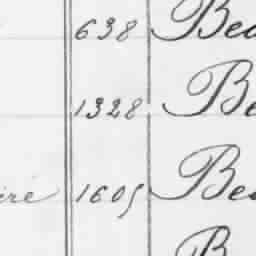 638 Bea
1328 Be
iré 1605 Bea
B